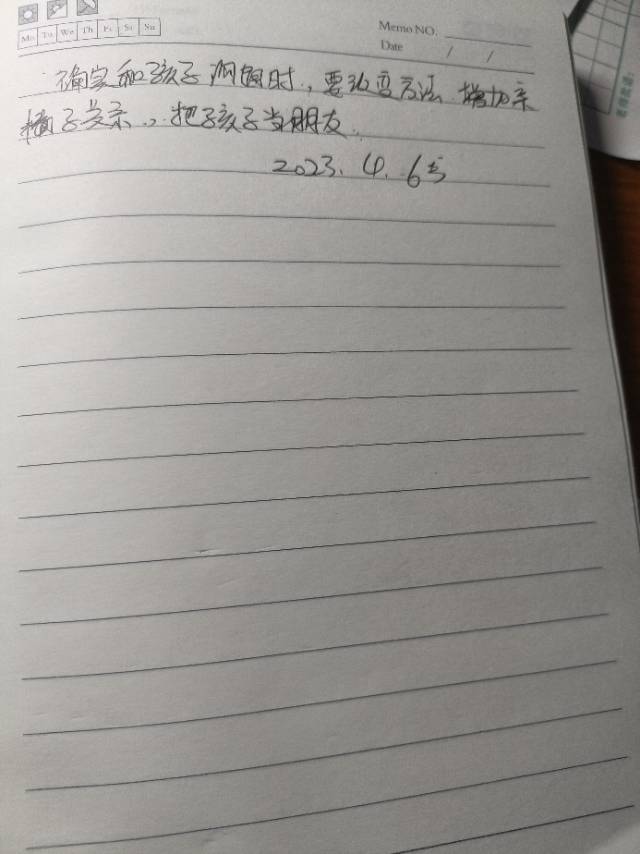 Mo Tu We Th Fr Sa Su
Memo NO.
Date / /
确定和孩子沟通时，要改变方法 增加亲
子关系，把孩子当朋友.
2023.4.6号